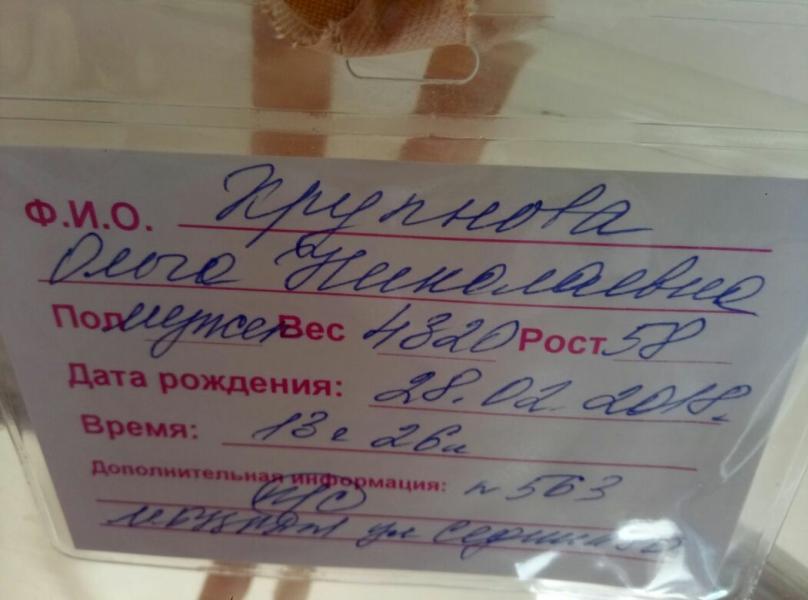 Ф.И.О. Крупнова
Ольга Николаевна
Пол мужск Вес 4320 Рост 58
Дата рождения: 28.02.2018.
Время: 13 ч 26 м
Дополнительная информация: № 563
ул